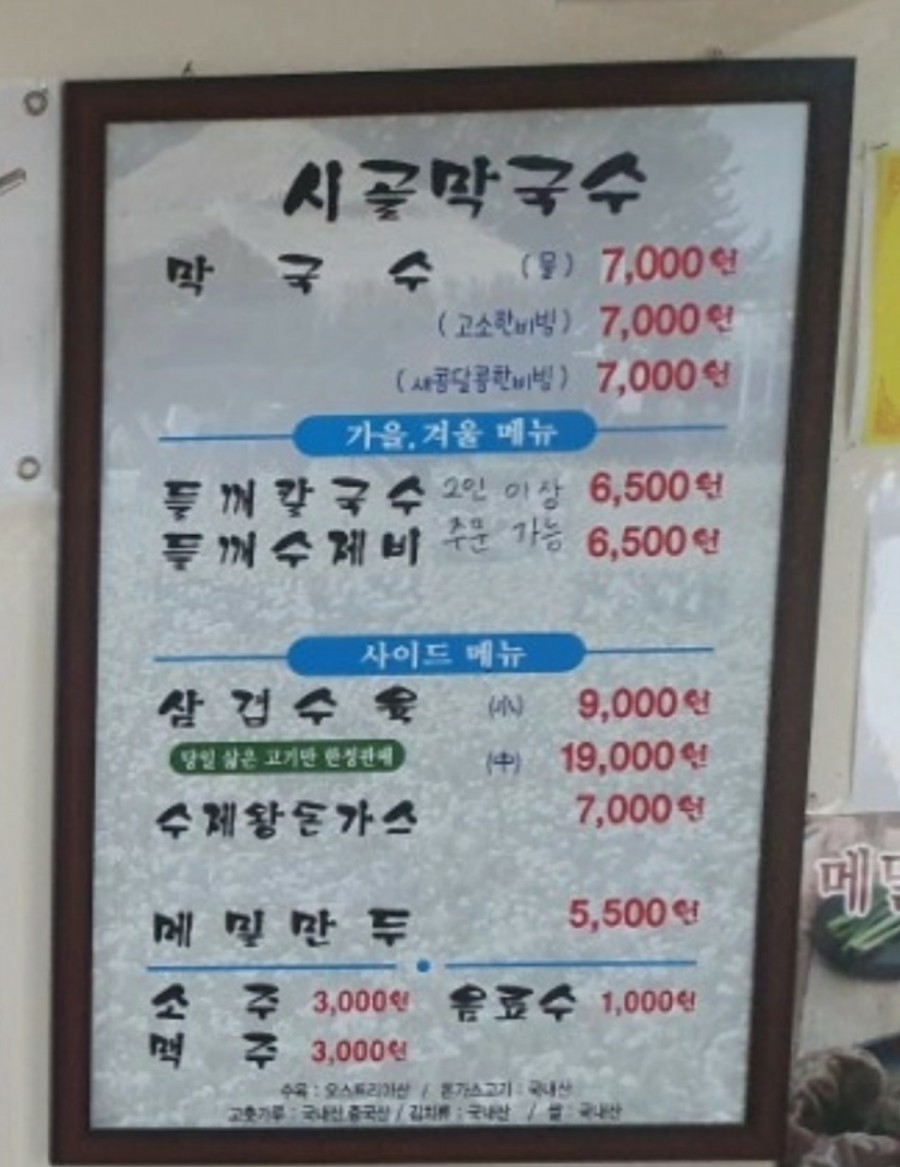 시골막국수
막국수 (물) 7,000원
(고소한비빔) 7,000원
(새콤달콤한비빔) 7,000원
가을,겨울 메뉴
들깨칼국수 2인 이상 6,500원
들깨수제비 주문 가능 6,500원
사이드 메뉴
삼겹수육 (小) 9,000원
당일 삶은 고기만 한정판매 (中) 19,000원
수제왕돈가스 7,000원
메밀만두 5,500원
소주 3,000원 음료수 1,000원
맥주 3,000원
수육 : 오스트리아산 / 돈가스고기 : 국내산
고춧가루 : 국내산,중국산 / 김치류 : 국내산 / 쌀 : 국내산
메밀